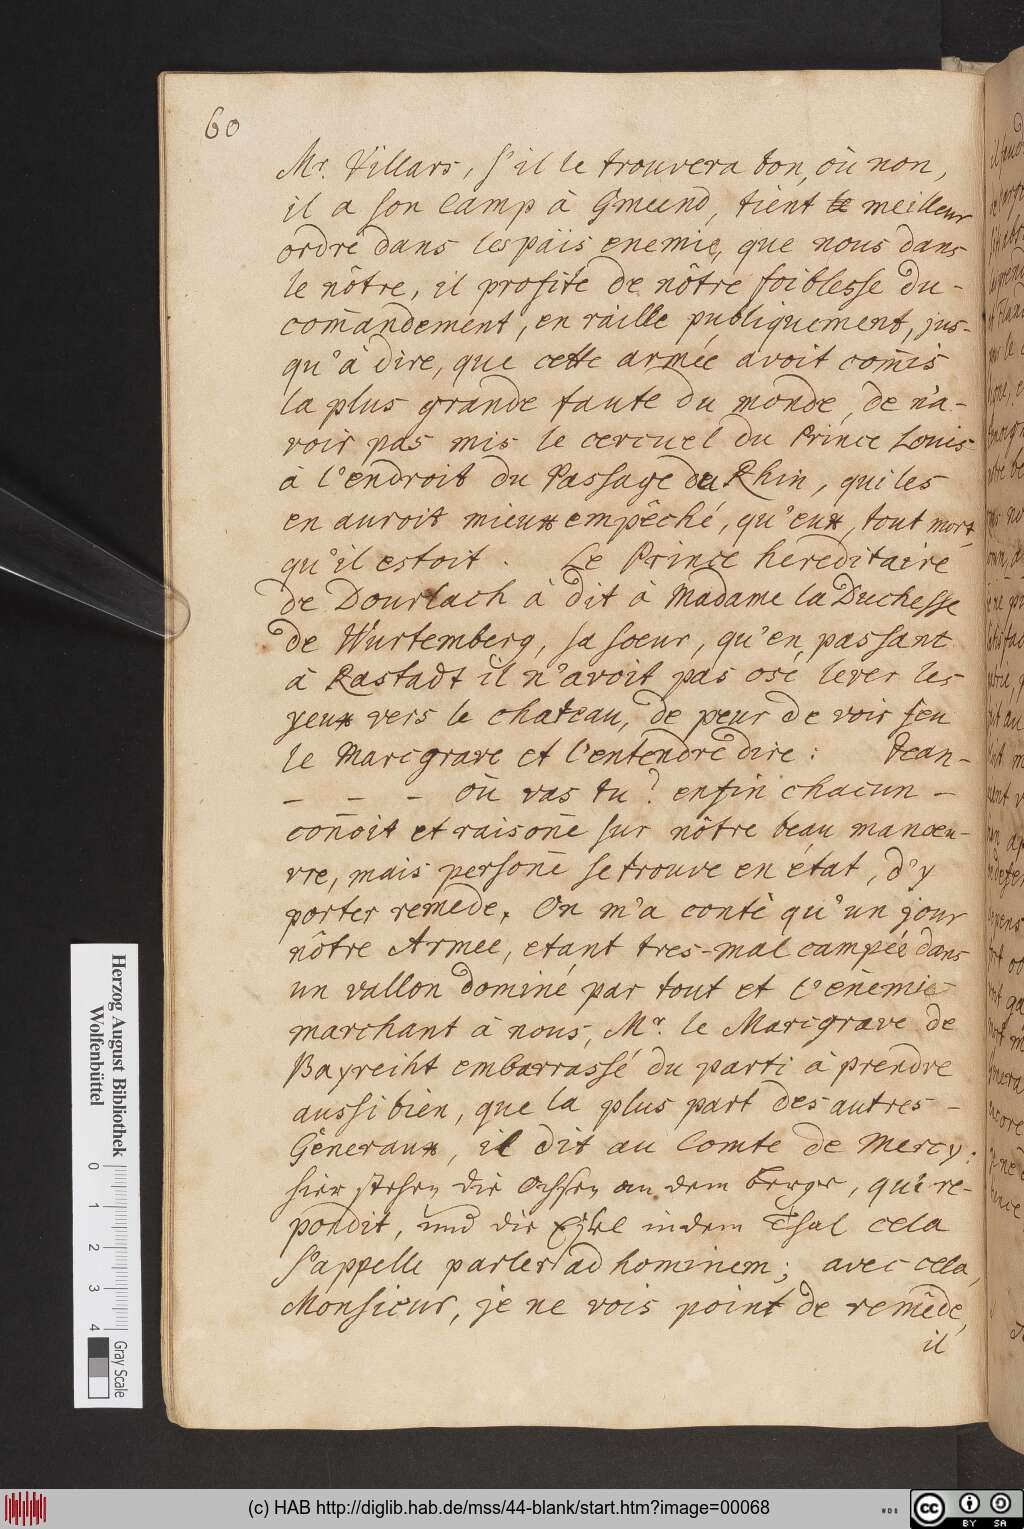 60
Mr. Villars, s'il le trouvera bon, où non,
il a son Camp à Gmeund, tient le meilleur
ordre dans les päis enemie, que nous dans
le nôtre, il profite de nôtre foiblesse du-
com̄andement, en raille publiquement, jus-
qu'à dire, que cette armée avoit com̄is
la plus grande faute du monde, de n'a-
voir pas mis le cercuel du Prince Louis
à l'endroit du Passage du Rhin, qui les
en auroit mieux empêché, qu'eux, tout mort,
qu'il estoit. Le Prince hereditaire
de Dourlach à dit à Madame la Duchesse
de Wurtemberg, sa soeur, qu'en passant
à Rastadt il n'avoit pas osé lever les
yeux vers le chateau, de peur de voir feu
le Marcgrave et l'entendre dire: Jean-
– – – où vas tu? enfin chacun –
con̄oit et raison̄e sur nôtre beau manoeu-
vre, mais person̄e se trouve en état, d'y
porter remede. On m'a conté qu'un jour
nôtre Armee, etant tres-mal campée dans
un vallon dominé par tout et l'enemie
marchant à nous, Mr. le Marcgrave de
Bayreiht embarrassé du parti à prendre
aussi bien, que la plus part des autres –
Géneraux, il dit au Comte de Mercy:
hier stehen die Ochsen an dem Berge, qui re-
pondit, und die Esel in dem Thal cela
s'appelle parler ad hominem; avec cela,
Monsieur, je ne vois point de remêde,
il
Herzog August Bibliothek
Wolfenbüttel
0 1 2 3 4
Gray Scale
(c) HAB http://diglib.hab.de/mss/44-blank/start.htm?image=00068
WDB
cc
BY SA